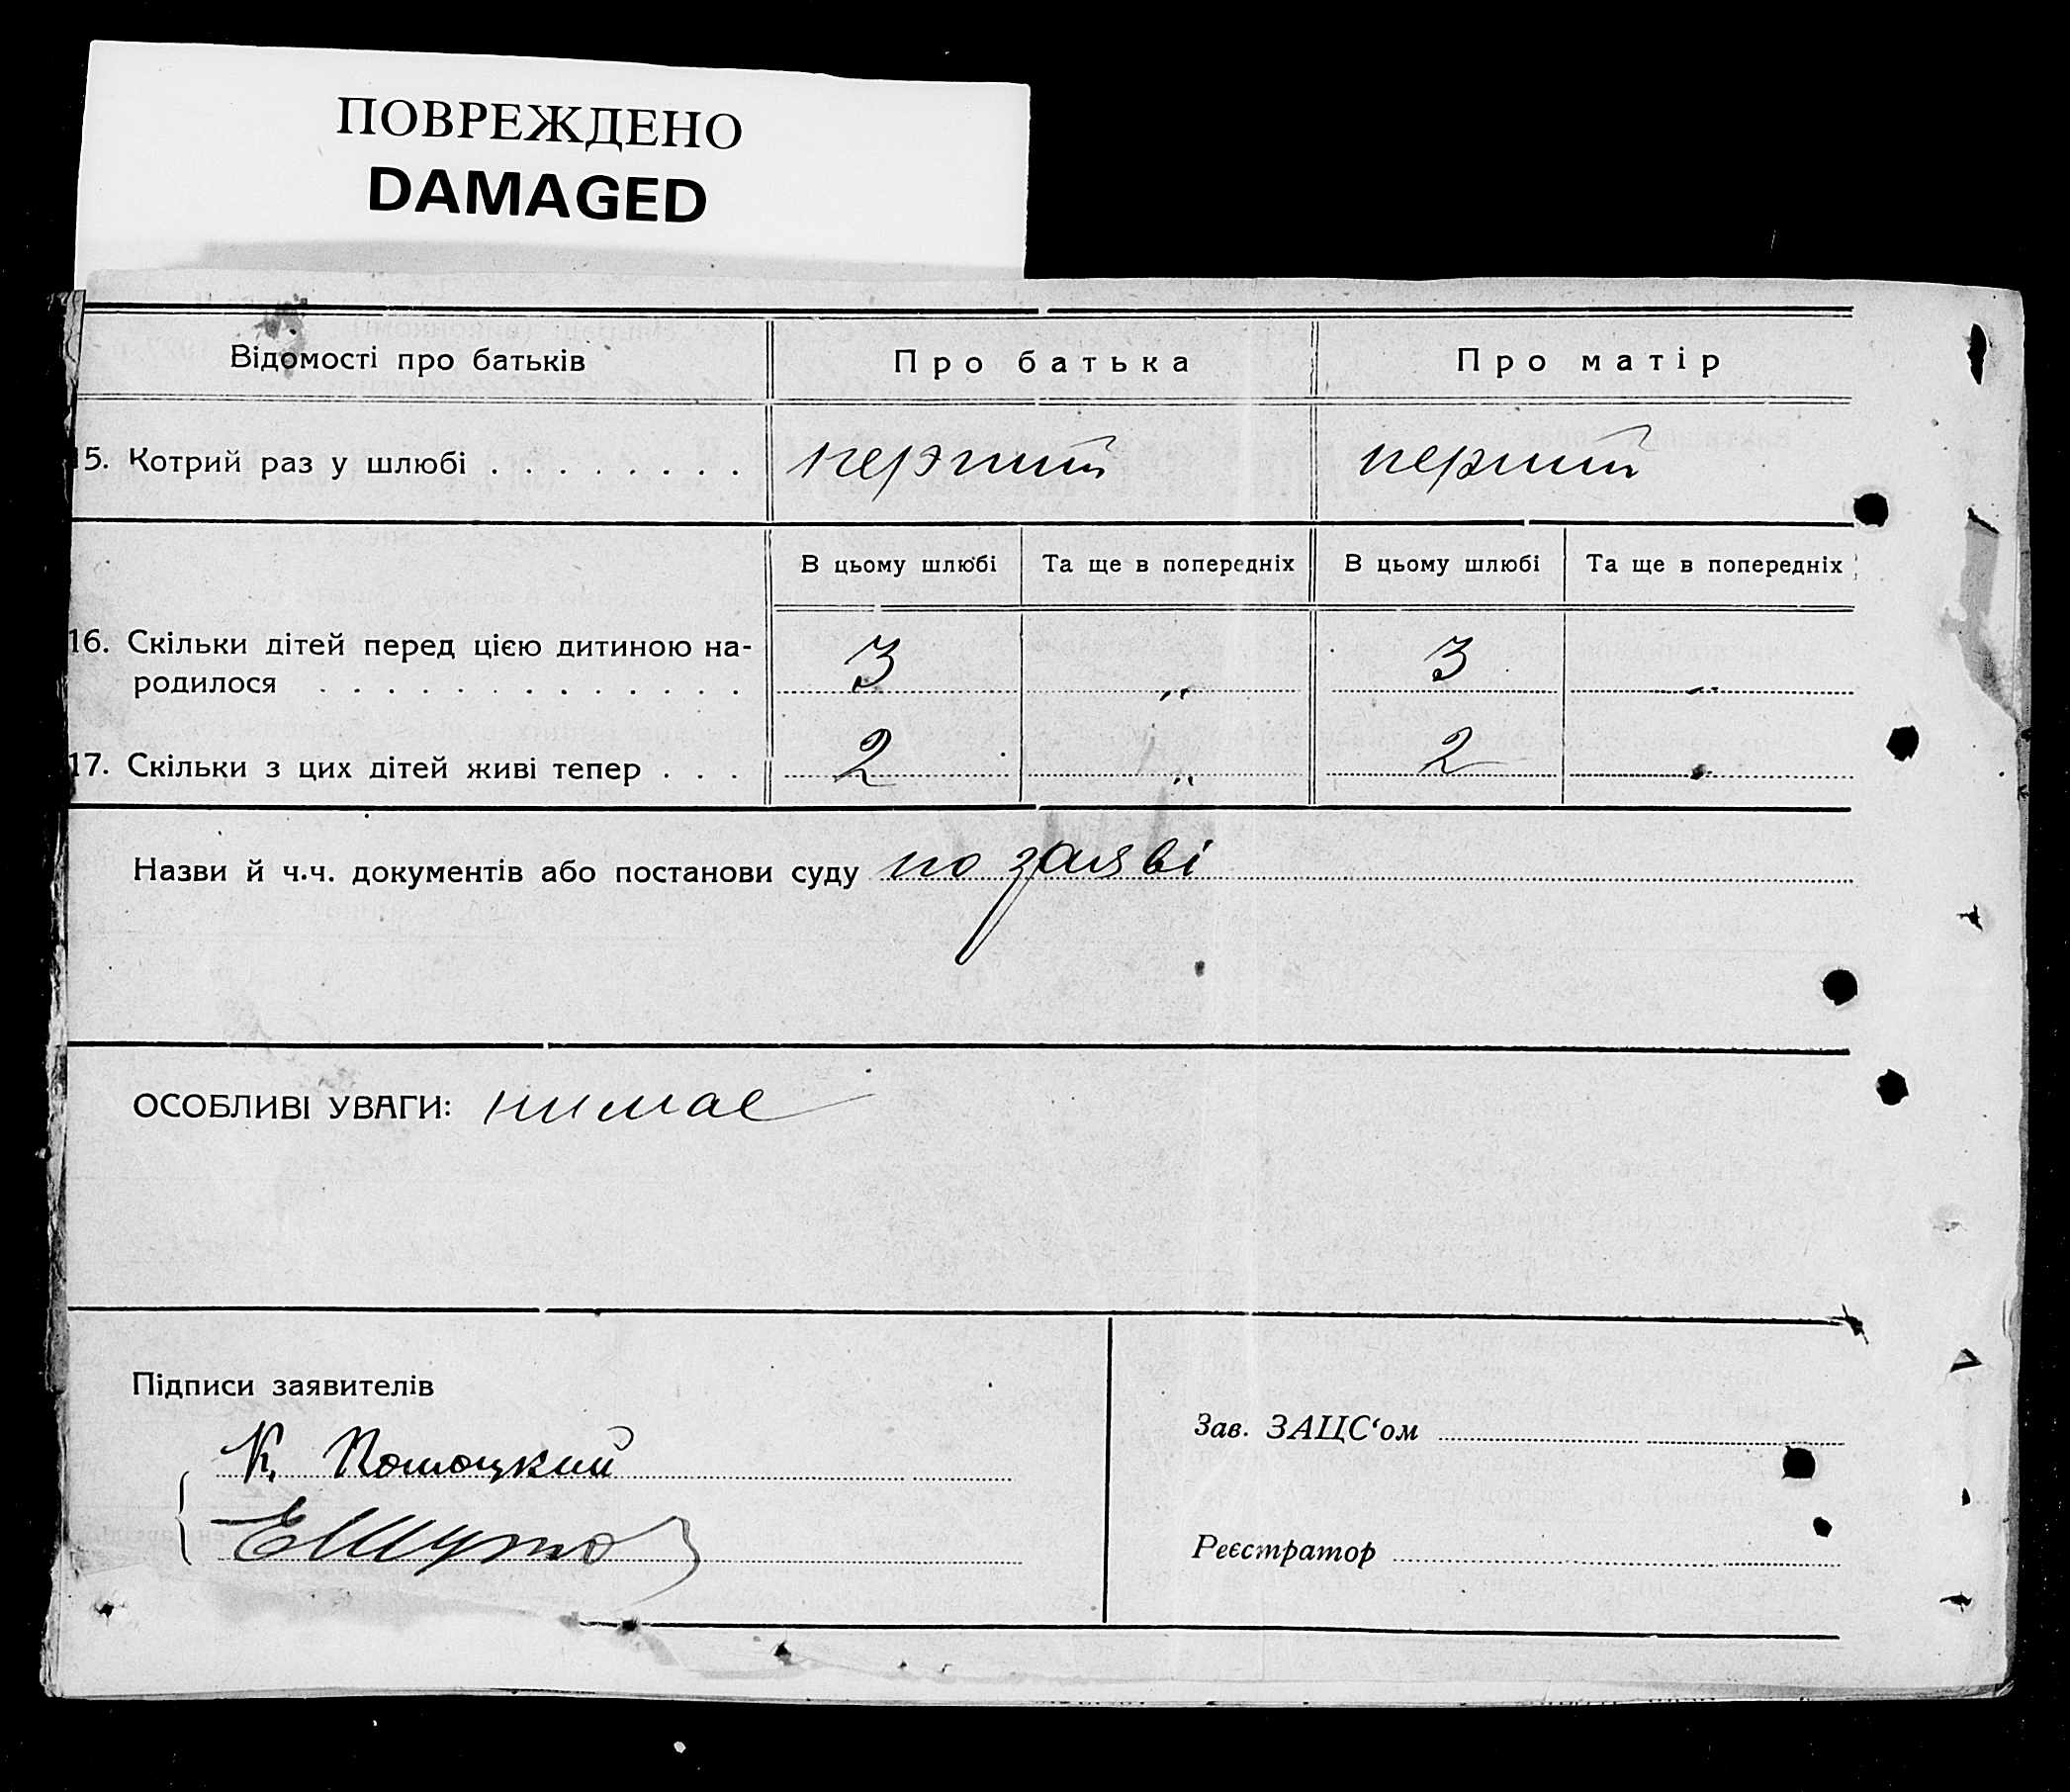 ПОВРЕЖДЕНО
DAMAGED
Відомості про батьків Про батька Про матір
15. Котрий раз у шлюбі . . . . . . . . перший перший
В цьому шлюбі Та ще в попередніх В цьому шлюбі Та ще в попередніх
16. Скільки дітей перед цією дитиною на-
родилося . . . . . . . . . . . . . 3 „ 3 „
17. Скільки з цих дітей живі тепер . . . 2 „ 2 „
Назви й ч.ч. документів або постанови суду по заяві
ОСОБЛИВІ УВАГИ: нимає
Підписи заявителів
К. Потоцкий
Зав. ЗАЦС‘ом
Реєстратор